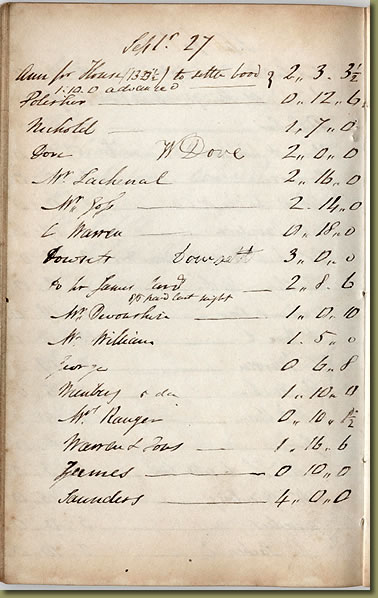 Septr. 27
Ann for House (13 3½) to settle book } 2,, 3,, 3½
1.10.0 advanced
Polisher 0,, 12,, 6
Nichold 1,, 7,, 0
Dove W Dove 2,, 0,, 0
Mr Lachenal 2,, 16,, 0
Mr Goss 2. 14,, 0
C Warren 0,, 18,, 0
Dowsett Dowsett 3,, 0,, 0
Do for James 2,, 8. 6
paid last night
Mr Devonshire 1,, 0,, 10
Mr William 1. 5,, 0
George 0 6,, 8
1,, 10,,
Mrs Ranger 0,, 10,, 1½
Warren & Sons 1. 16,, 6
James 0 10,, 0
Saunders 4,, 0,, 0